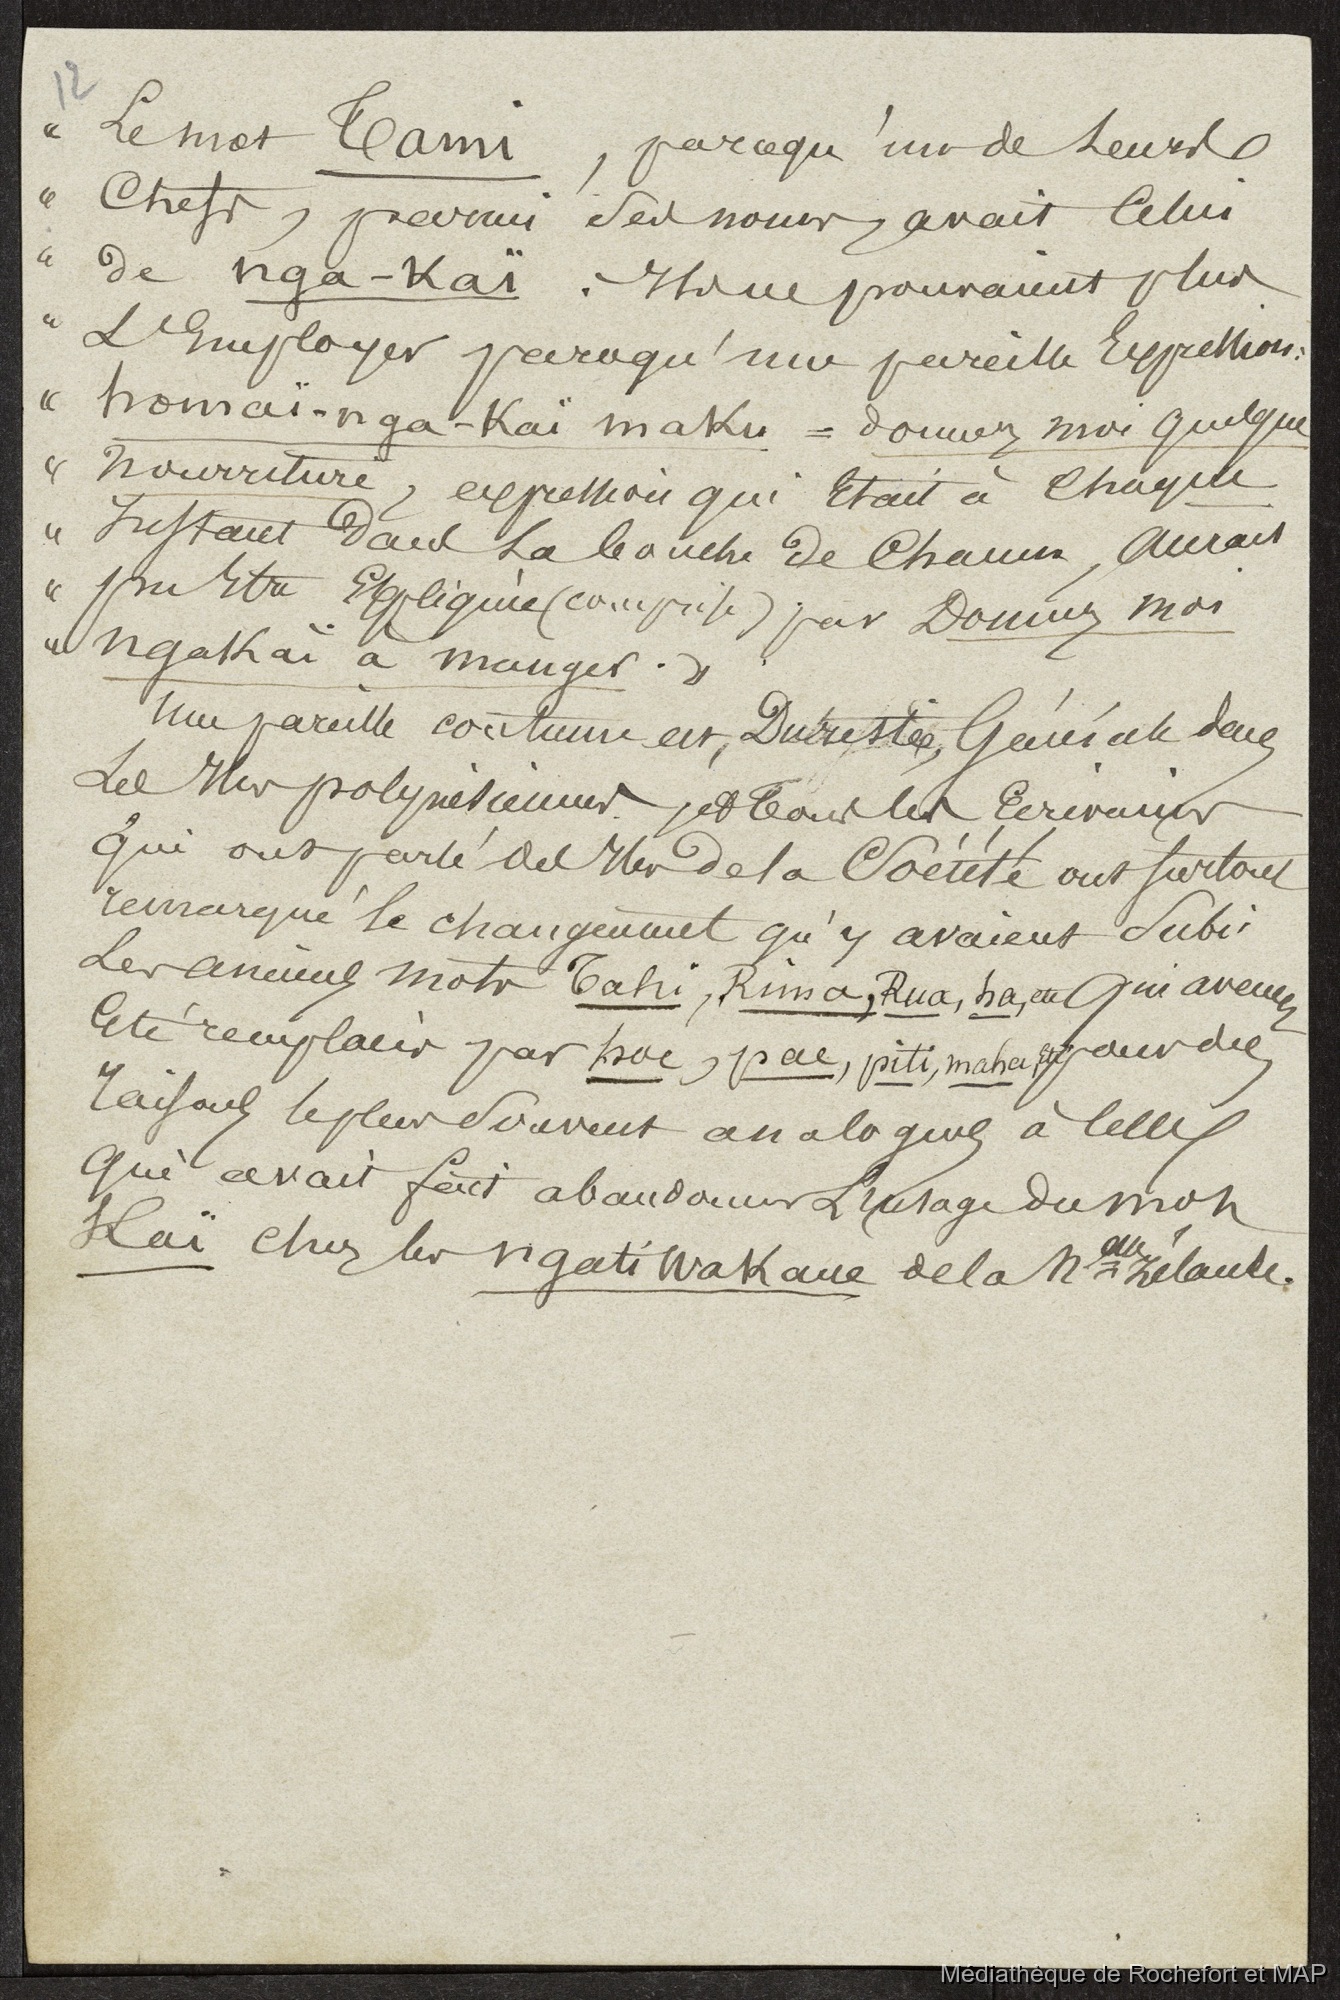 12
" Le mot Tami, parcequ'un de leurs
" Chefs, parmi ses noms, avait Celui
" de nga-Kaï. Ils ne pouvaient plus
" L'Employer parcequ'une pareille Expression:
" homaï-nga-Kaï maku = donnez moi quelque
" nourriture, expression qui Etait à Chaque
" Instant Dans La bouche De Chacun, Aurait
" pu Etre Expliquée (comprise) par Donnez moi
" ngakaï à manger. »
Une pareille coutume est, Du reste, Générale dans
Les Iles polynésiennes, et Tous les Ecrivains
qui ont parlé des Iles De la Société ont surtout
remarqué le changement qu'y avaient Subi
Les anciens mots Tahi, Rima, Rua, ha, etc qui avaient
Eté remplacés par hoe, pae, piti, maha, etc pour des
raisons le plus Souvent analogues à celles
qui avait fait abandonner L'usage du mot
Kaï chez les ngatiwakaue de la Nelle Zélande.
Médiathèque de Rochefort et MAP